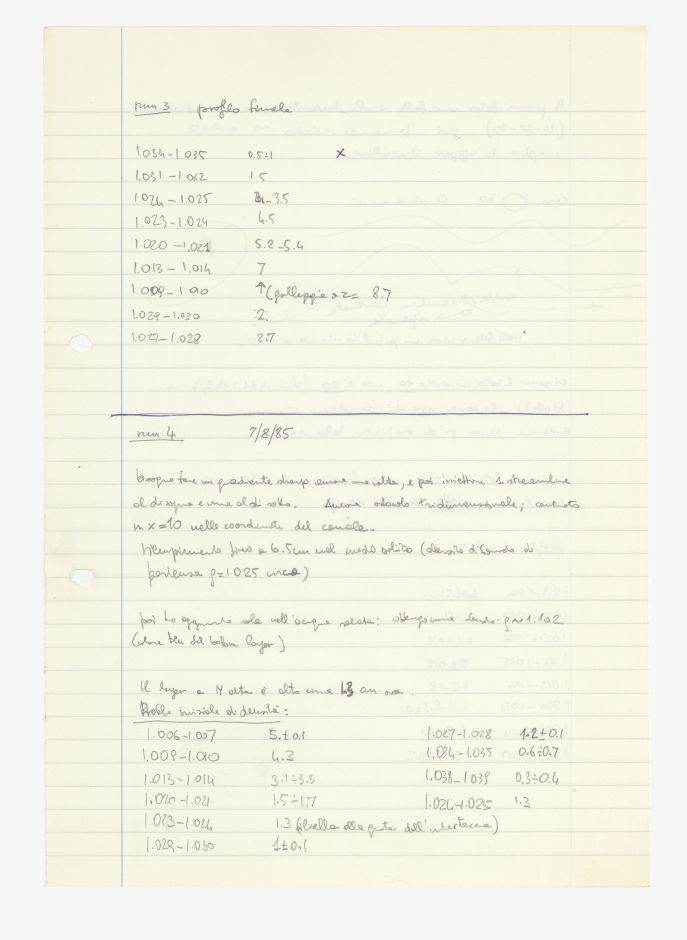 run 3 profilo finale
1.034-1.035 0.5÷1 x
1.031-1.032 1.5
1.024-1.025 -3.5
1.023-1.024 4.5
1.020-1.021 5.2-5.4
1.013-1.014 7
↑(galleggia a z= 8.7
1.029-1.030 2.
1.027-1.028 2.7
run 4 7/8/85
bisogna fare un gradiente sharp ancora una volta, e poi iniettare 1 streamline
al di sopra e una al di sotto. Ancora ostacolo tridimensionale, centrato
in x=10 nelle coordinate del canale.
riempimento fino a 6.5cm nel modo solito (densità di fondo di
partenza ρ=1025 circa)
poi ho aggiunto sale nell'acqua salata: ottengo una
(colore blu del bottom layer)
Il layer a N alta è alto circa cm ora.
Profilo iniziale di densità:
1.006-1.007 5.±0.1 1.027-1.028 1.2±0.1
1.009-1.010 4.3 1.034-1.035 0.6÷0.7
1.013-1.014 3.1÷3.3 1.038-1.039 0.3÷0.4
1.020-1.021 1.5÷1.7 1.024-1.025 1.3
1.023-1.024 1.3 (livello alla quota dell'interfaccia)
1.029-1.030 1±0.1